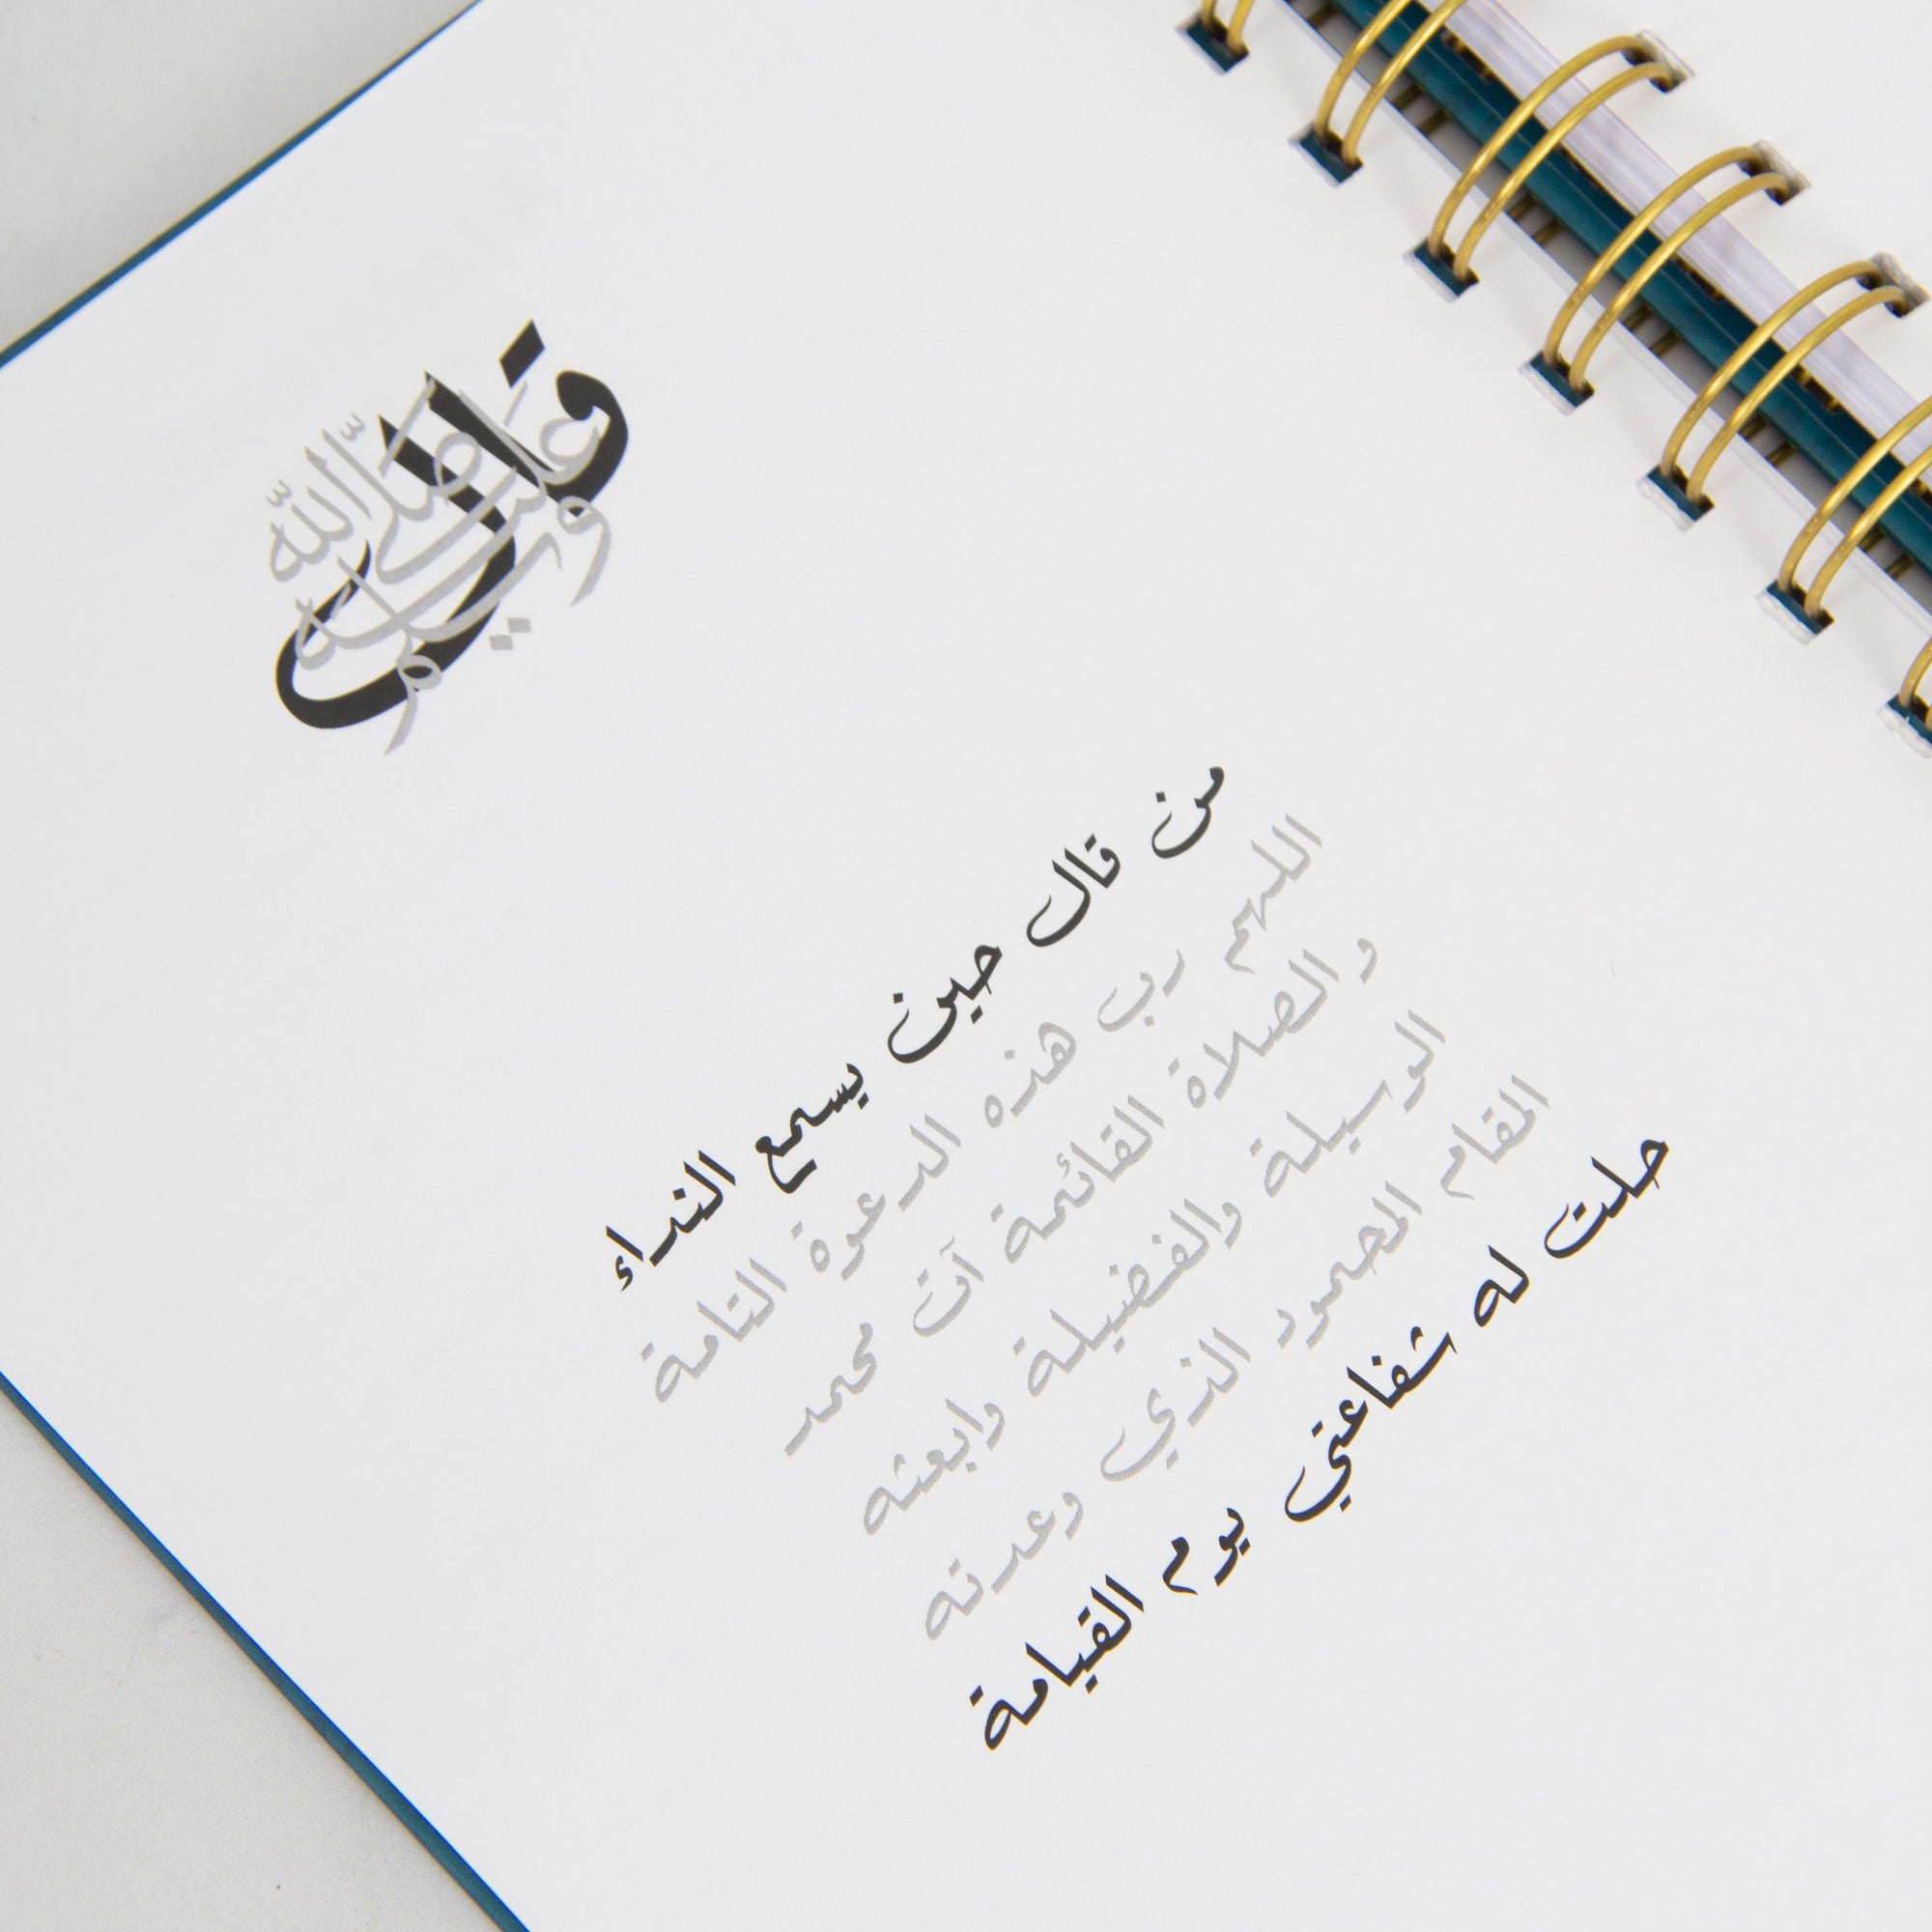 قال صلى الله عليه وسلم
من قال حين يسمع النداء
اللهم رب هذه الدعوة التامة
و الصلاة القائمة آت محمد
الوسيلة والفضيلة وابعثه
المقام المحمود الذي وعدته
حلت له شفاعتي يوم القيامة